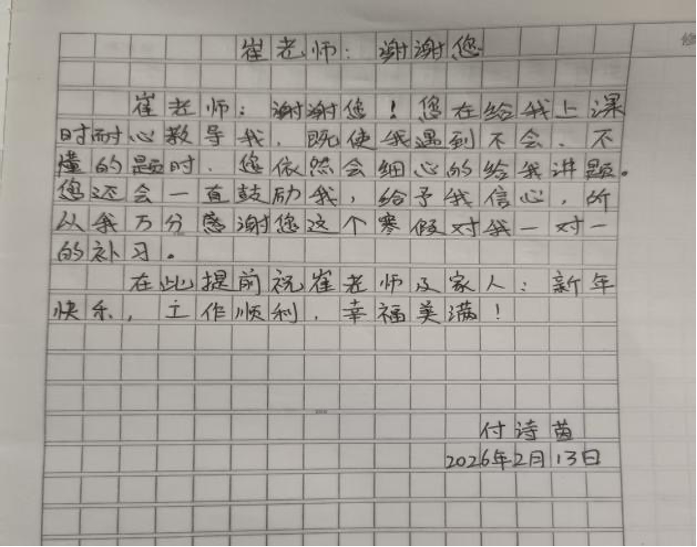 崔老师：谢谢您
崔老师：谢谢您！您在给我上课
时耐心教导我，既使我遇到不会、不
懂的题时，您依然会细心的给我讲题。
您还会一直鼓励我，给予我信心，所
以我万分感谢您这个寒假对我一对一
的补习。
在此提前祝崔老师及家人：新年
快乐，工作顺利，幸福美满！
付诗茵
2026年2月13日